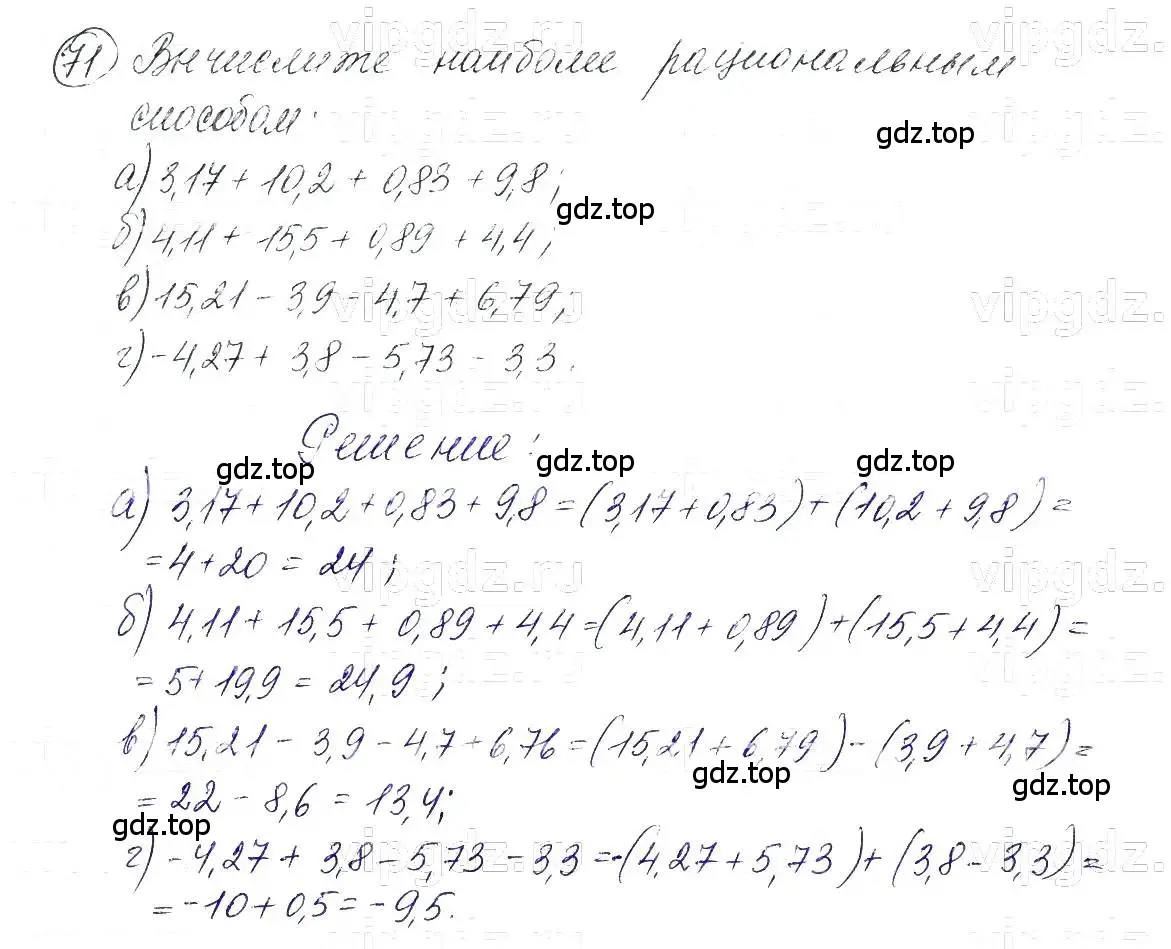 71 Вычислите наиболее рациональным
способом:
gdz.top
а) 3,17 + 10,2 + 0,83 + 9,8;
gdz.top
б) 4,11 + 15,5 + 0,89 + 4,4;
в) 15,21 - 3,9 - 4,7 + 6,79;
vipgdz.
г) -4,27 + 3,8 - 5,73 - 3,3.
Решение:
gdz.top gdz.top gdz.top
а) 3,17 + 10,2 + 0,83 + 9,8 = (3,17 + 0,83) + (10,2 + 9,8) =
= 4 + 20 = 24;
vipgdz.ru vipgdz.
б) 4,11 + 15,5 + 0,89 + 4,4 = (4,11 + 0,89) + (15,5 + 4,4) =
= 5 + 19,9 = 24,9;
в) 15,21 - 3,9 - 4,7 + 6,76 = (15,21 + 6,79) - (3,9 + 4,7) =
gdz.top gdz.top
= 22 - 8,6 = 13,4;
gdz.top
г) -4,27 + 3,8 - 5,73 - 3,3 = -(4,27 + 5,73) + (3,8 - 3,3) =
= -10 + 0,5 = -9,5.